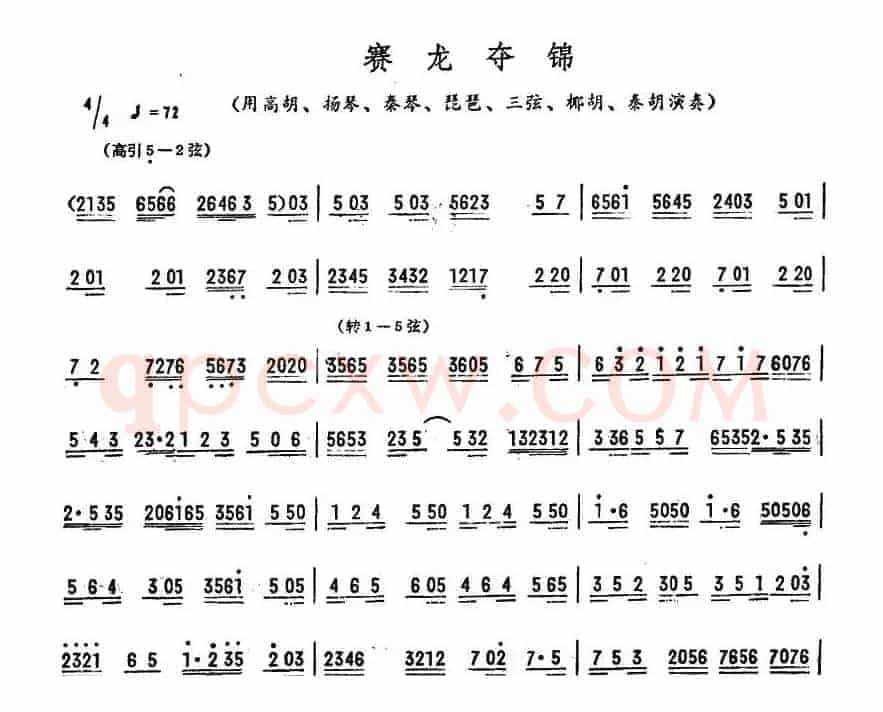 赛龙夺锦
4/4 ♩=72 (用高胡、扬琴、秦琴、琵琶、三弦、椰胡、秦胡演奏)
(高引5̣—2弦)
(2135 6566 26463 5)03 | 503 503 5623 57 | 6561̇ 5645 2403 501 |
201 201 2367̣ 203 | 2345 3432 1217̣ 220 | 7̣01 220 7̣01 220 |
(转1—5弦)
7̣2 7̣276̣ 5673 2020 | 3565 3565 3605 675 | 63̇2̇1̇2̇1̇71̇76076 |
543 23·2123 506 | 5653 235 532 132312 | 336557 65352·535 |
2·535 2061̇65 3561̇ 550 | 124 550 124 550 | 1̇·6 5050 1̇·6 50506̣ |
564 305 3561̇ 505 | 465 605 464 565 | 352 305 351 203̇ |
2̇3̇2̇1̇ 65 1̇·2̇3̇5 2̇03 | 2346 3212 702̇ 7·5 | 753 2056 7656 7076 |
qpcxw.COM